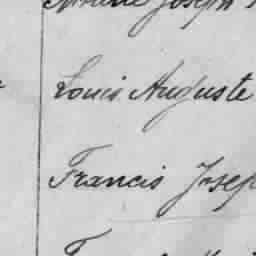 Joseph
Louis Auguste
Francis Josep